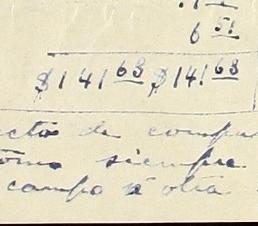 6 51
$141 63 $141 63
cto de compra
como siempre
campo á otra